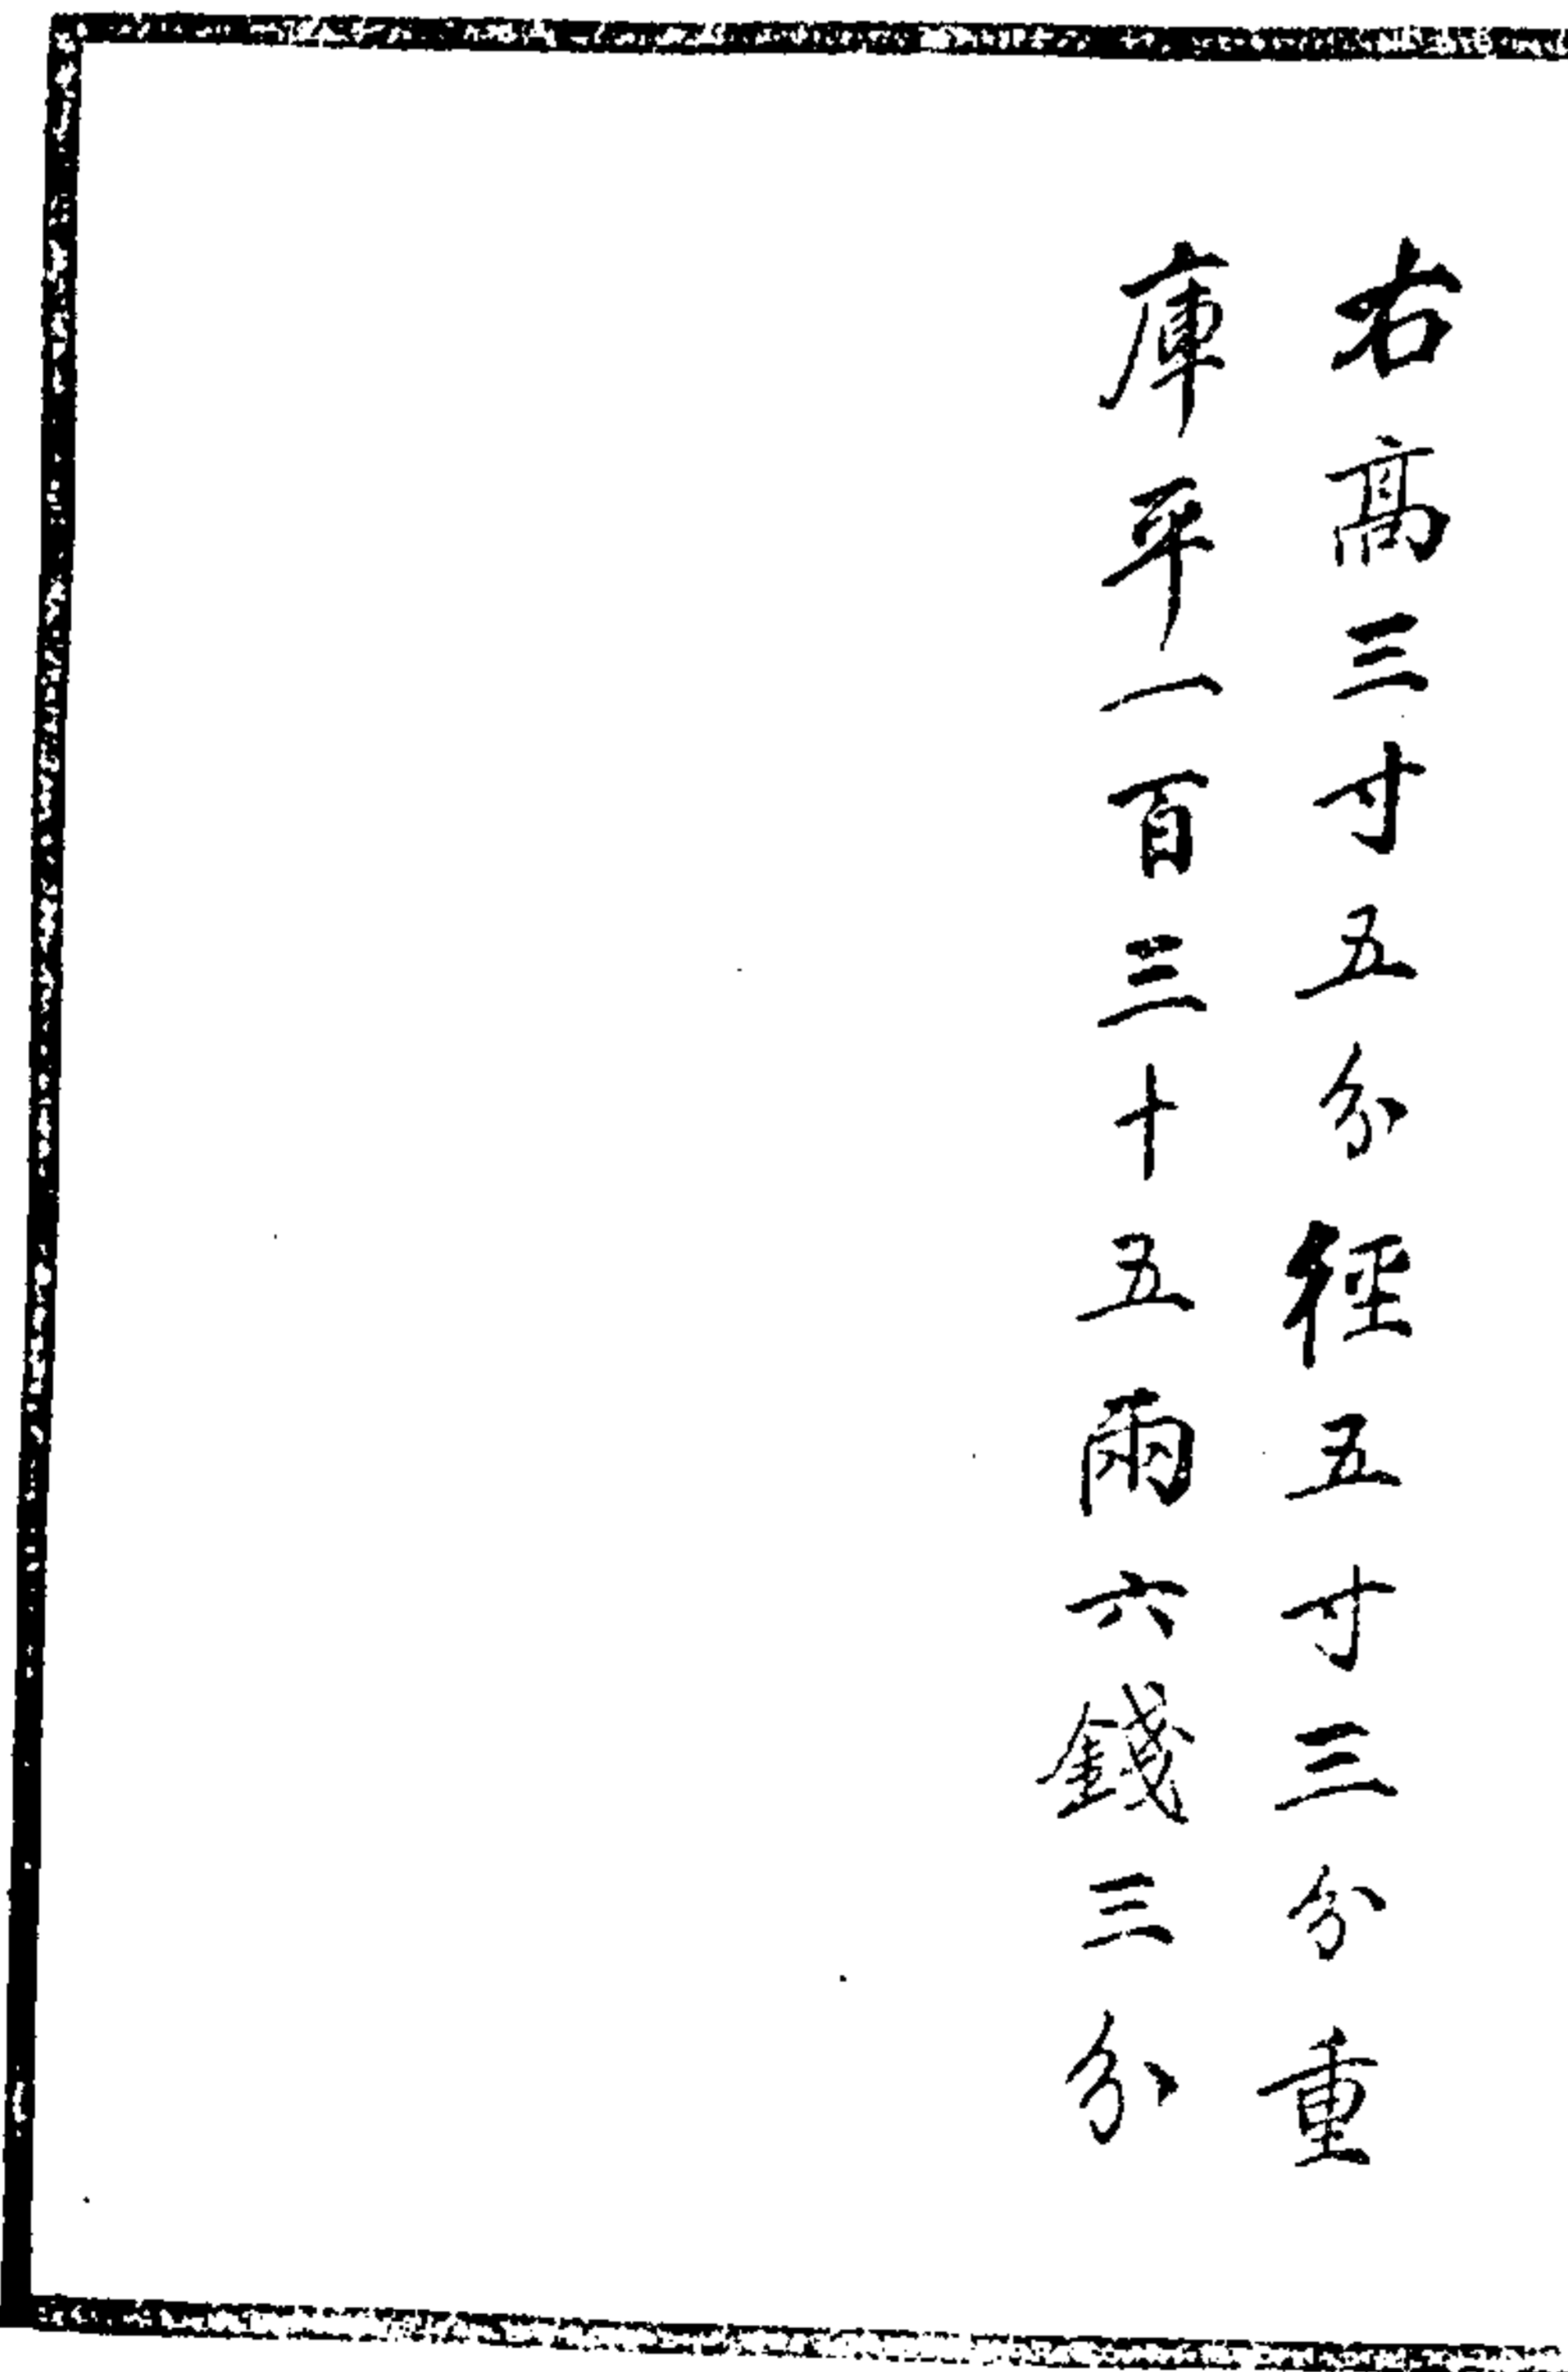 右高三寸五分徑五寸三分重
庫平一百三十五兩六錢三分